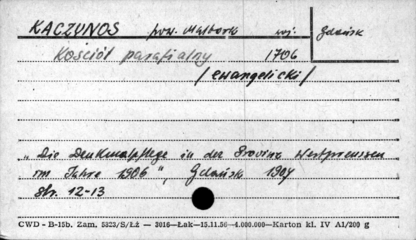 KACZYNOS pow. Malbork woj. Gdańsk
Kościół parafialny 1706
/ewangelicki/
„Die Denkmalpflege in der Provinz Westpreussen
im Jahre 1906", Gdańsk 1907
str. 12-13
CWD - B-15b. Zam. 5823/S/Łż — 3016—Łak—15.11.56—4.000.000—Karton kl. IV A1/200 g